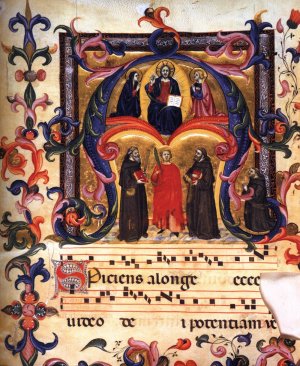 ASpiciens alonge ecce
uideo de i potentiam